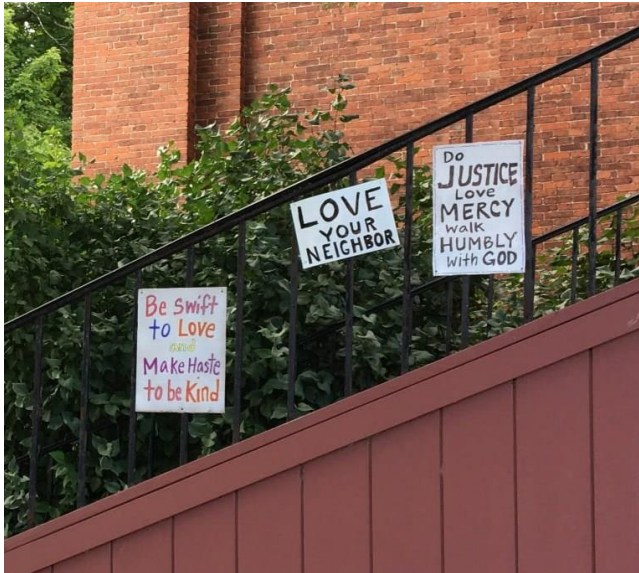 Be Swift
to Love
and
Make Haste
to be Kind
LOVE
YOUR
NEIGHBOR
Do
JUSTICE
Love
MERCY
Walk
HUMBLY
With GOD